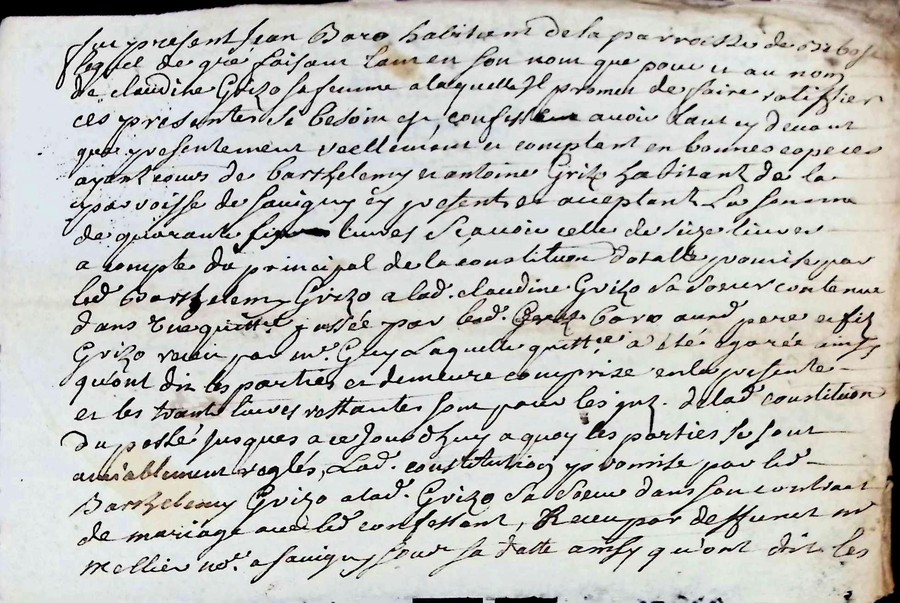 fut present Jean Baro habitant de la parroisse de
lequel de gré faisant tant en son nom que pour et au nom
de claudine Grizo sa femme a laquelle Il promet de faire ratiffier
ces presentes si besoin est, confesse avoir Eu cy devant
que presentement reellement et comptant en bonnes especes
ayant cours de Barthelemy et antoine Grizo habitant de la
parroisse de Savigny Cy present et acceptant La somme
de quarante six livres sçavoir celle de seize livres
a compte du principal de la constitution dotalle promise par
led. Barthelemy Grizo a lad. claudine Grizo sa soeur contenue
dans quittce. passée par lesd. Baro aud. pere et fils
Grizo receu par me. Guy Laquelle quittce. a été egarée ainsy
qu'ont dit les parties et demeure comprize en la presente
et les trente livres restantes sont pour les jnt. de lad. constitution
du passé jusques a ce Jourd'huy a quoy les parties se sont
amiablement reglés, Lad. constitution promise par led.
Barthelemy Grizo a lad. Grizo sa soeur dans son contract
de mariage avec led. confessant, Receu par deffunct me.
Mellier nore. a Savigny sous sa datte ainsy qu'ont dit les